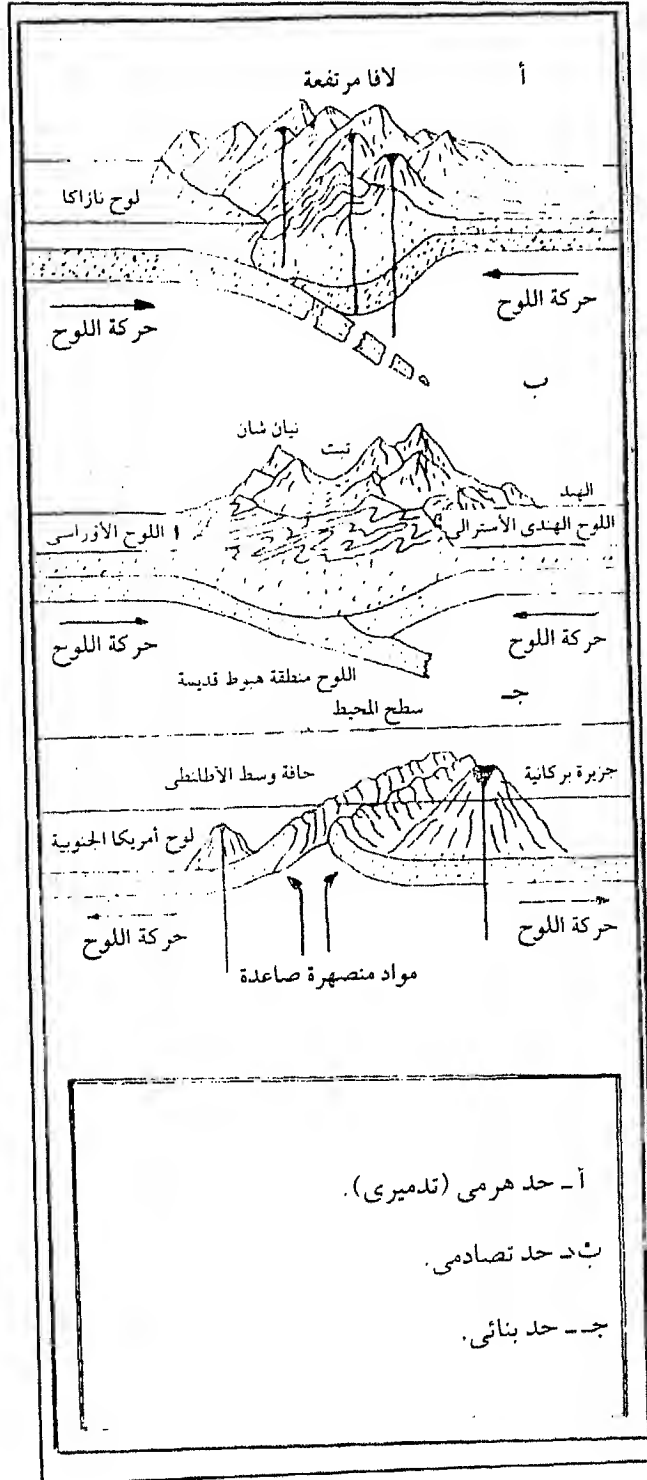 أ
لافا مرتفعة
لوح نازاكا
حركة اللوح
حركة اللوح
ب
نيان شان
تبت
الهند
اللوح الهندى الأسترالى
اللوح الأوراسى
حركة اللوح
حركة اللوح
اللوح منطقة هبوط قديمة
جـ
سطح المحيط
جزيرة بركانية
حافة وسط الأطلنطى
لوح أمريكا الجنوبية
حركة اللوح
حركة اللوح
مواد منصهرة صاعدة
أ ـ حد هرمى (تدميرى).
ب ـ حد تصادمى.
جـ ـ حد بنائى.